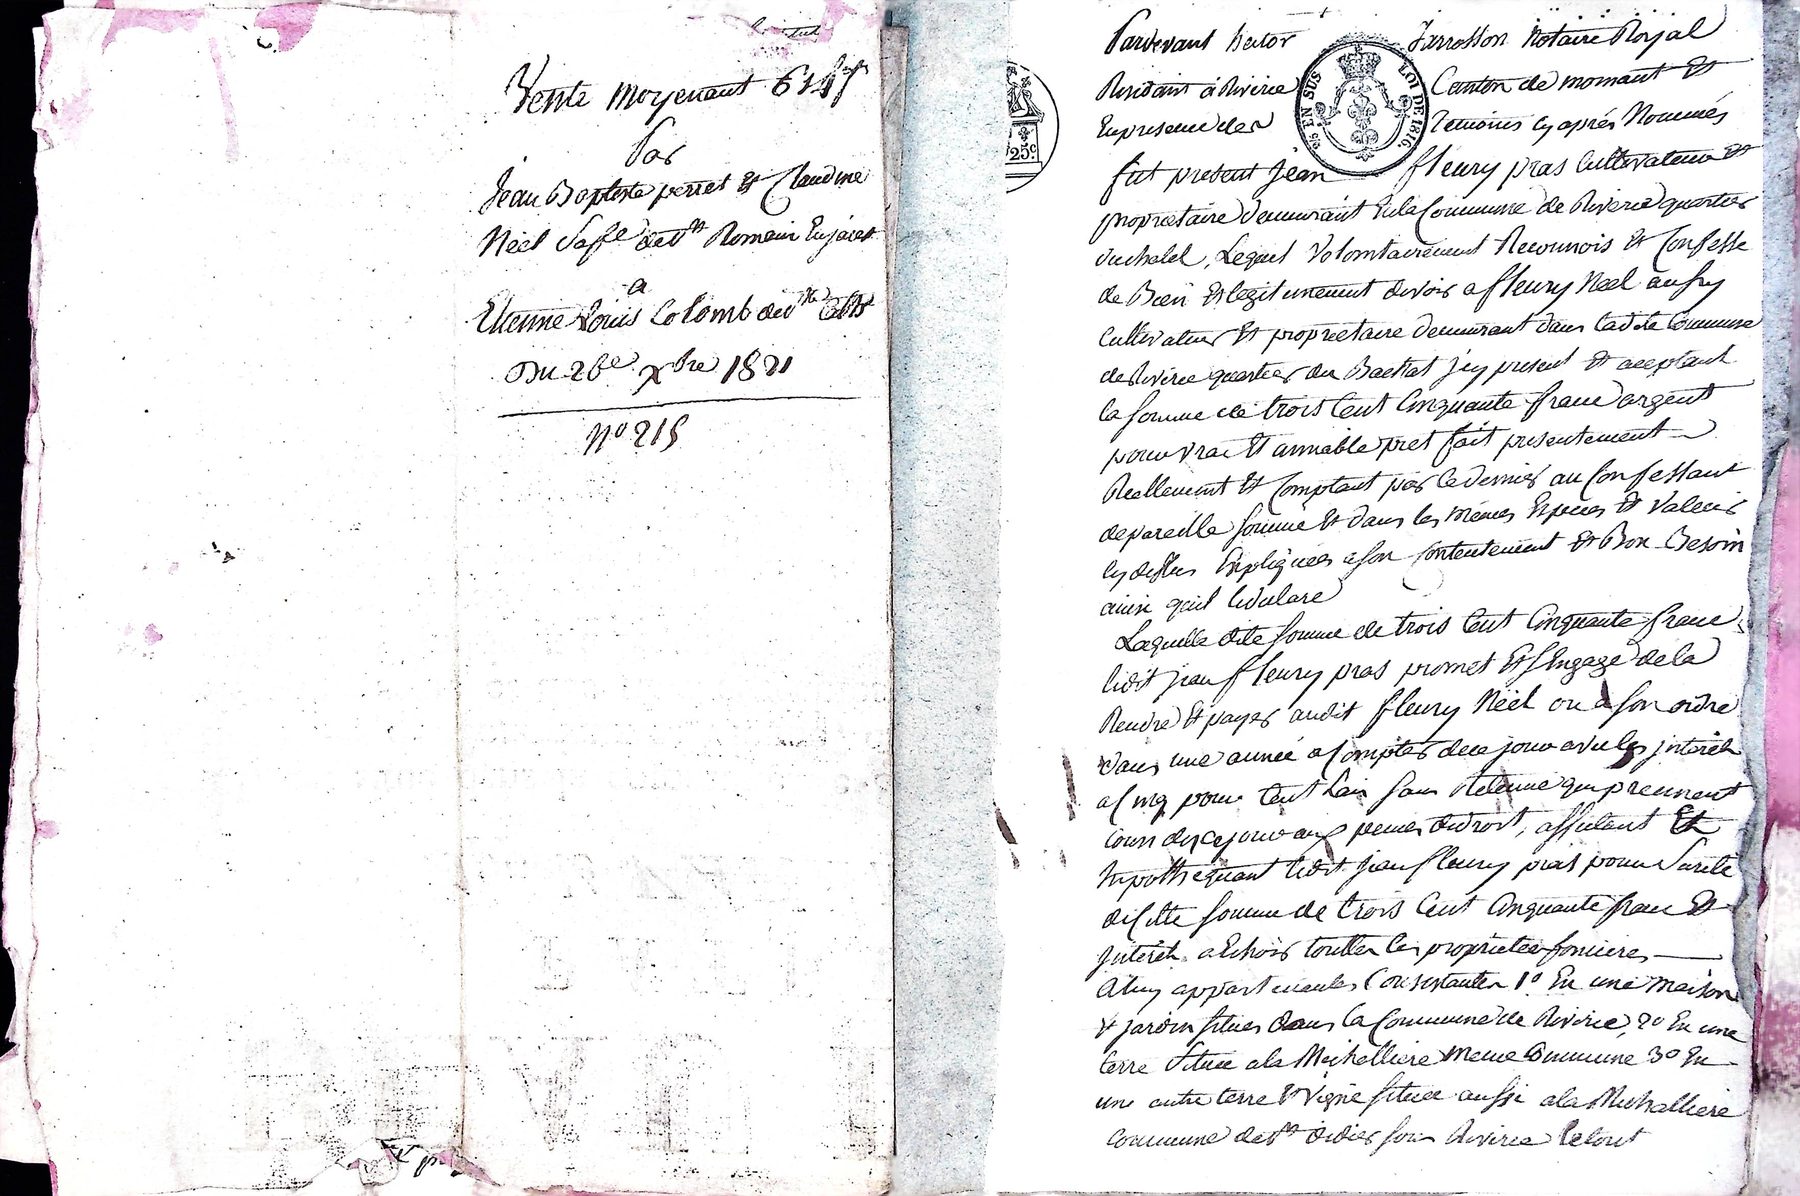 Vente moyenant
Par
Jean Baptiste perret Et Claudine
Néel Sa fe de St Romain En jarest
a
Etienne Louis Colomb de
Du 26e Xbre 1821
No 215
Pardevant hector Jarrosson Notaire Royal
Residant à Riverie Canton de mornant Et
En presence des temoins cy aprés Nommés
fut present Jean fleury pras Cultivateur Et
proprietaire demeurant En la Commune de Riverie quartier
du chatel, Lequel Volontairement Reconnois Et Confesse
de Bien Et legitimement devoir a fleury Néel
Cultivateur Et proprietaire demeurant dans ladite Commune
de Riverie quartier du Bachat jcy present Et aceptant
la somme de trois Cent Cinquante franc argent
pour vrai Et amiable pret fait presentement
Reellement Et Comptant par ce dernier au Confessant
de pareille somme Et dans les mémes Especes Et Valeurs
cy dessus Expliquées a son Contentement Et Bon Besoin
ainsi quil le declare
Laquelle dite somme de trois Cent Cinquante franc
ledit jean fleury pras promet Et sEngage de la
Rendre Et payer audit fleury Néel ou a son ordre
dans une année a Compter de ce jour avec les jnterêts
a Cinq pour Cent Lan sans Retenue qui prennent
cours des ce jour aux peines de droit, affectant Et
hypothequant ledit jean fleury pras pour Sureté
de Cette somme de trois Cent Cinquante franc Et
jnterêts a Echoir touttes les proprietes foncieres
a luy appartenantes Consistantes 1o En une maison
Et jardin situés dans la Commune de Riverie, 2o En une
terre Située a la Michalliere meme Commune 3o En
une autre terre Et Vigne située aussi a la Michalliere
Commune de St didier sous Riverie le tout
25c
EN SUS
LOI DE 1816